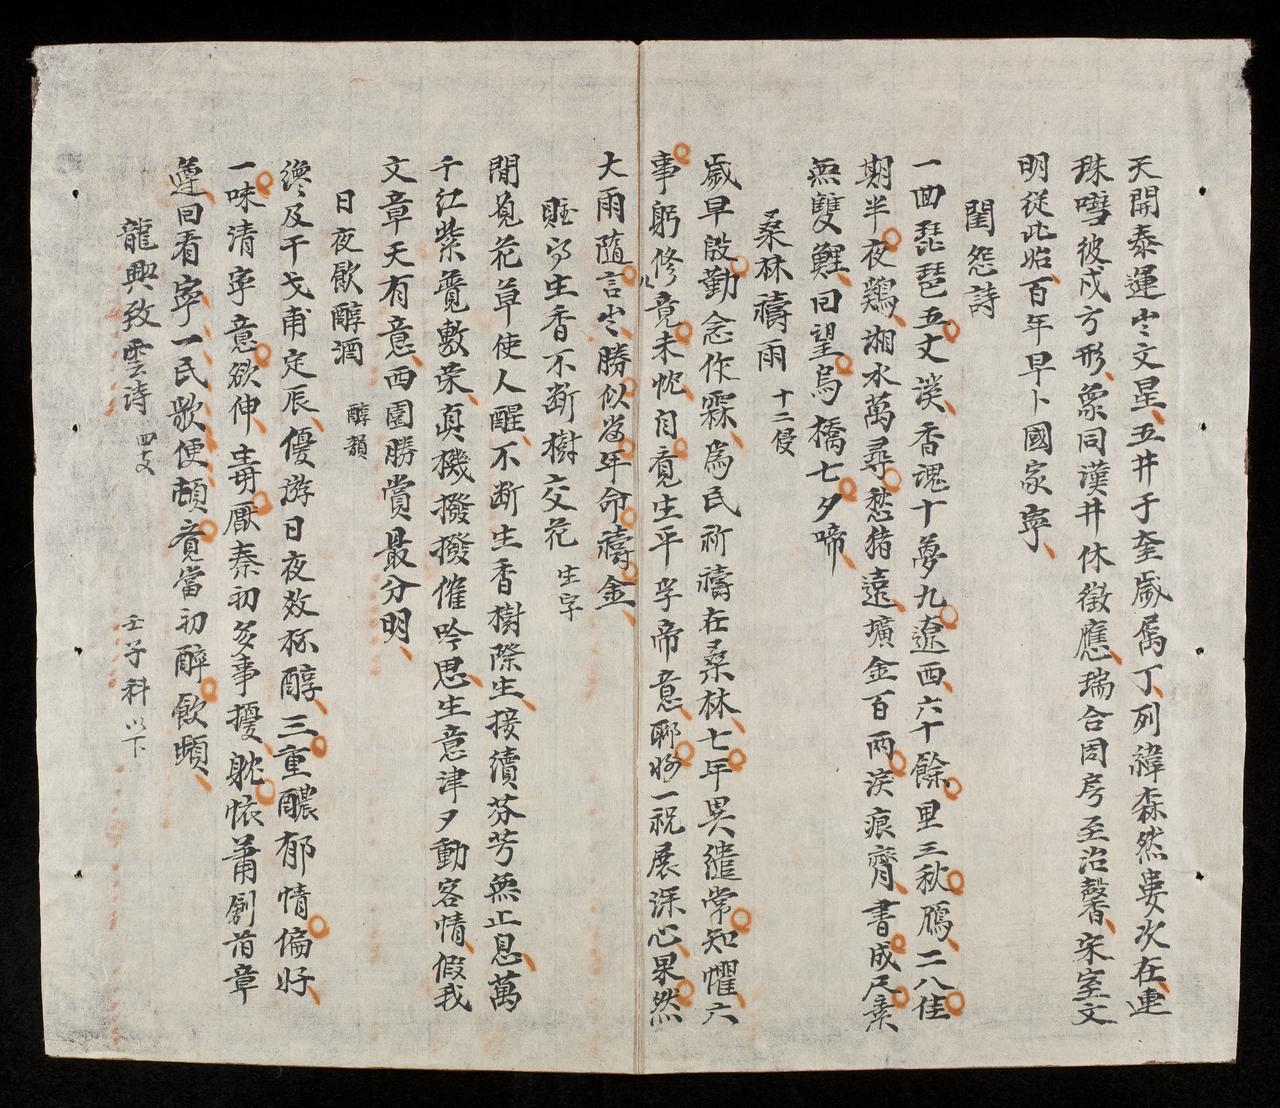 天開泰運尘文星五井于奎歲属丁列緯森然婁次在連
珠㘅彼戌方形象同漢井休徵應瑞合周房至治馨宋室文
明從此始百年早卜國家寧
閨怨詩
一曲琵琶五丈溪香魂十夢九遼西六千餘里三秋鴈二八佳
期半夜鶏湘水萬尋愁猪遠壙金百兩淚痕齊書成尺素
無雙鯉回望烏橋七夕啼
桑林禱雨 十二侵
歲早殷勤念作霖為民祈禱在桑林七年異遣常知懼六
事躬修竟未忱自覔生平孚帝意聊將一祝展深心果然
大雨随言尘勝似當年命禱金
賍 生香不断樹交花 生字
閒覔花草使人醒不断生香樹際生接續芬芳無止息萬
千红紫竟敷荣真機撥撥催吟思生意津夕動客情假我
文章天有意西園勝賞最分明
日夜飲醇酒 醇韻
纔及干戈甫定辰優游日夜效杯醇三重醲郁情偏好
一味清寧意欲伸毒厭秦初多事擾躭依蕭創前章
遵回看寧一民歌便頓覔當初醉飲頻
龍興致雲詩 四支 壬子科以下